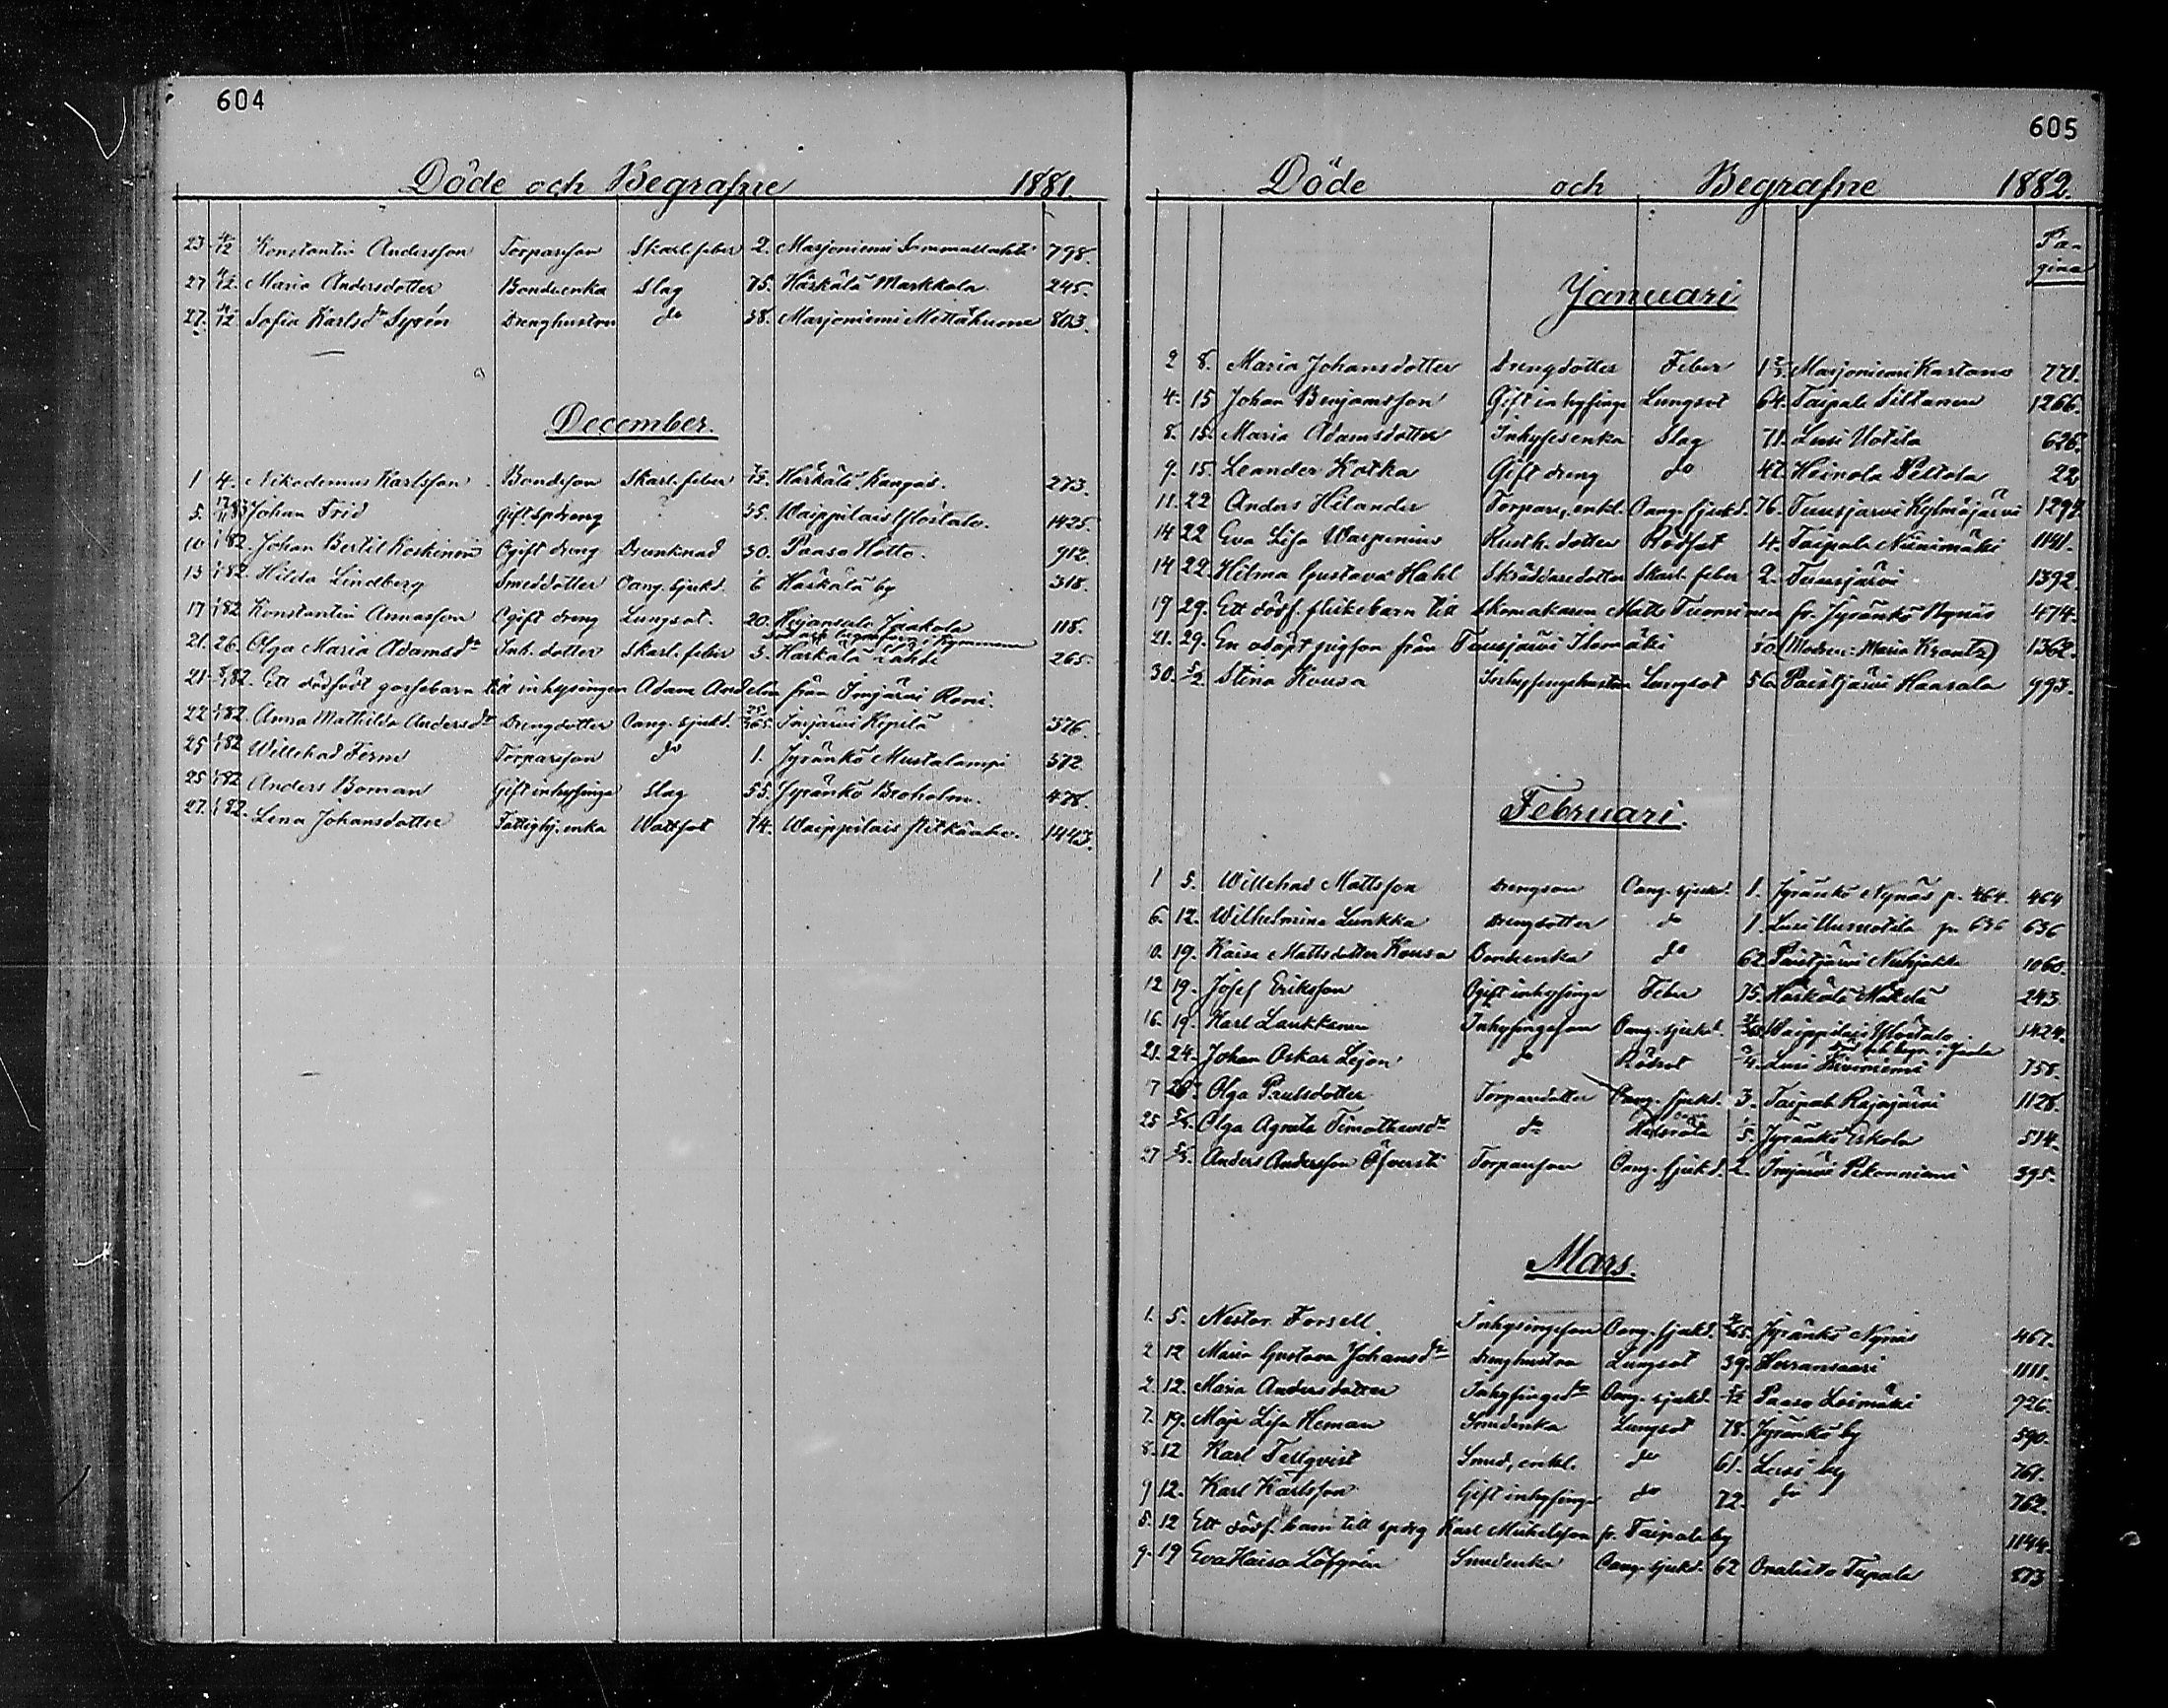 604
Döde och Begrafne 1881.
23 4/12 Konstantin Andersson Torparson Skarl. feber 2. Marjoniemi 798.
27 4/12 Maria Andersdotter Bondeenka Slag 75. Härkälä Markkola 245.
27. 4/12 Sofia Karlsdr Syrén Drenghustru do 38. Marjoniemi 803.
December.
1 4. Nikodemus Karlsson Bondeson Skarl. feber Härkälä Kangas. 273.
5. Johan Frid Gift Spdreng 55. Waippilais 1425.
10 1/1 82. Johan Bertil Koskinen Ogift dreng Drunknad 30. Paaso Hotto. 912.
13 1/1 82. Hilda Lindberg Smeddotter Oang. sjukd. Härkälä by 318.
17 1/1 82 Konstantin Annasson Ogift dreng Lungsot. 20. Heijansalo Jaakola 118.
21. 26. Olga Maria Adamsdr Inh. dotter Skarl. feber 3. Härkälä Lahti 265.
21. 82. Ett dödfödt gossebarn till inhysingen Adam Andelin från Imjärvi Roni.
22 82. Anna Mathilda Andersdr Drengdotter Oang. sjukd. 25/365 Imjärvi Kipilä 376.
25 82 Willehad Ferm Torparson do 1. Jyränkö Mustalampi 572.
25 82 Anders Boman Gift inhysinge Slag 55. Jyränkö Broholm. 478.
27. 82. Lena Johansdotter Fattighj. enka Wattsot 74. Waippilais 1443.
605
Döde och Begrafne 1882.
Pa-
gina
Januari
2 8. Maria Johansdotter Drengdotter Feber Marjoniemi Kartano 771.
4. 15 Johan Benjamsson Gift inhysinge Lungsot 64. Taipale Siltanen 1266.
8. 15. Maria Adamsdotter Inhysesenka Slag 71. Lusi Uotila 626.
9. 15. Leander Kotka Gift dreng do 42. Heinola Peltola 22.
11. 22 Anders Hilander Torpare, enkl. Oang. sjukd. 76. Tuusjärvi Kylmäjärvi 1297.
14 22 Eva Lisa Waspinius Kusk. dotter Rödsot 4. Taipale Niinimäki 1141.
14 22. Hilma Gustava Hahl Skräddaredotter Skarl. feber 2. Tuusjärvi 1392.
19 29. Ett dödf. flickebarn till Skomakaren Matts Tuominen fr. Jyränkö Nynäs 474.
21. 29. En odöpt pigson från Tuusjärvi Ilomäki (Modren: Maria Krantz) 1362.
30. 5/2. Stina Kousa Inhysingehustru Lungsot 56. Paistjärvi Haasala 993.
Februari.
1 5. Willehad Mattsson Drengson Oang. sjukd. 1. Jyränkö Nynäs p. 464. 464
6. 12. Wilhelmina Lunkka Drengdotter do 1. Lusi p. 636 636
10. 19. Kaisa Mattsdotter Kousa Bondeenka do 62. Paistjärvi 1060.
12 19. Josef Eriksson Ogift inhysinge Feber 75. Härkälä Mäkelä 243
16. 19. Karl Laukkanen Inhysingeson Oang. sjukd. Waippilais 1424.
21. 24. Johan Oskar Lejon do Rödsot Lusi Kiviniemi 758.
7 26. Olga Paulsdotter Torparedotter Oang. sjukd. 3. Taipale Rajajärvi 1128.
25 5/3. Olga Agneta Timotheusdr do 5. Jyränkö Eskola 514.
27 5/3. Anders Andersson Öfversti Torparson Oang. sjukd. 2. Imjärvi Pekanniemi 395.
Mars.
1. 5. Nestor Forsell Inhysingeson Oang. sjukd. Jyränkö Nynäs 467.
2 12 Maria Gustava Johansdr Drenghustru Lungsot 39. Herransaari 1111.
2. 12. Maria Andersdotter Inhysingedr Oang. sjukd. Paaso Loimäki 926.
7. 19. Maja Lisa Heman Smedenka Lungsot 78. Jyränkö by 590.
8. 12 Karl Tellqvist Smed, enkl. do 61. Lusi by 761.
9 12. Karl Karlsson Gift inhysinge do 72. do 762.
5. 12 Ett dödf. barn till spdrg Karl Mickelsson fr. Taipale by 1144.
9. 19 Eva Kaisa Löfgrén Smedenka Oang. sjukd. 62 Onalisto Tupala 873